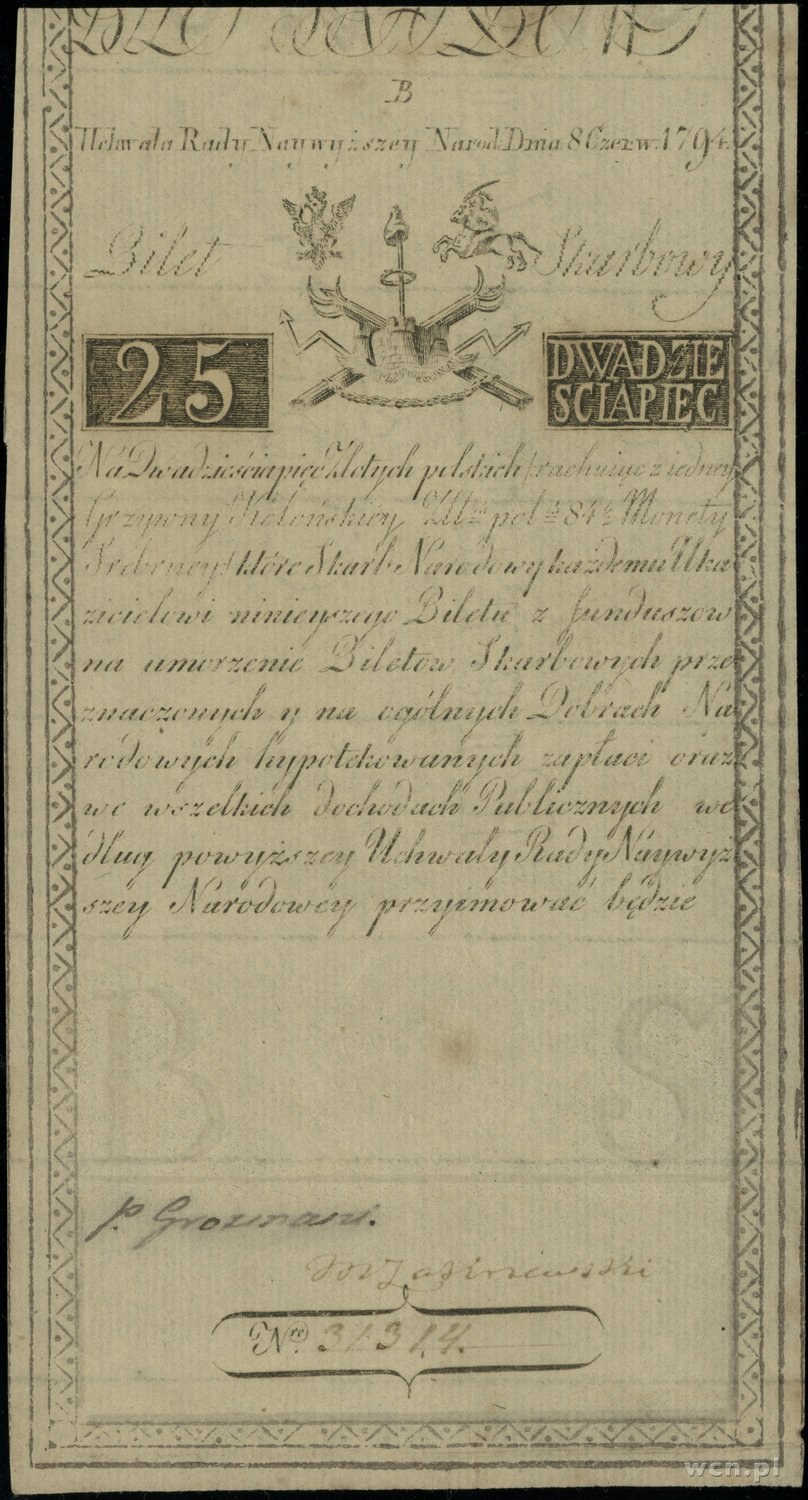 B
Uchwała Rady Naywyższey Narod: Dnia 8 Czerw: 1794.
Bilet Skarbowy
25
DWADZIE
SCIAPIĘC
Na Dwadzieściapięć Złotych polskich /rachuiąc z iedney
Grzywny Kolońskiey Zlł: pol: 84½ Monety
Srebrney/ które Skarb Narodowy każdemu Uka
zicielowi ninieyszego Biletu z funduszow
na umorzenie Biletow Skarbowych prze
znaczonych y na ogólnych Dobrach Na
rodowych hypotekowanych zapłaci oraz
we wszelkich dochodach Publicznych we
dług powyższey Uchwały Rady Naywyż
szey Narodowey przyimować będzie
B S
P. Grozmani.
Zakrzewski
Nro 31314.
wcn.pl